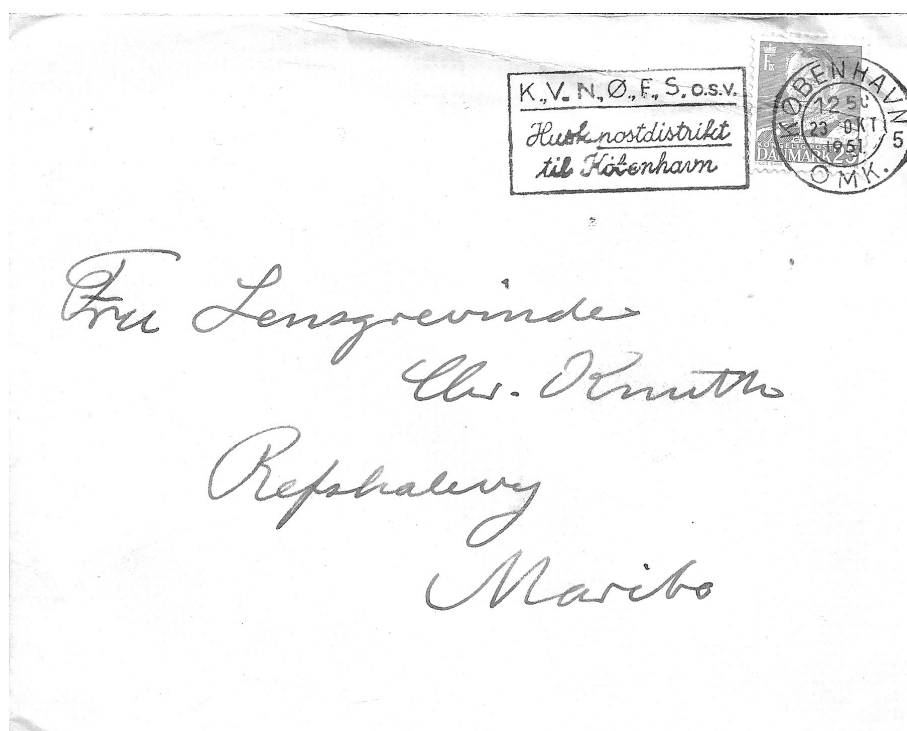 K., V., N., Ø., F., S. o.s.v.
Husk postdistrikt
til København
KØBENHAVN
12 50
23 OKT
1951
5
OMK.
KONGELIG POST
DANMARK 25
Fru Lensgrevinde
Chr. Knuth
Refshalevej
Maribo